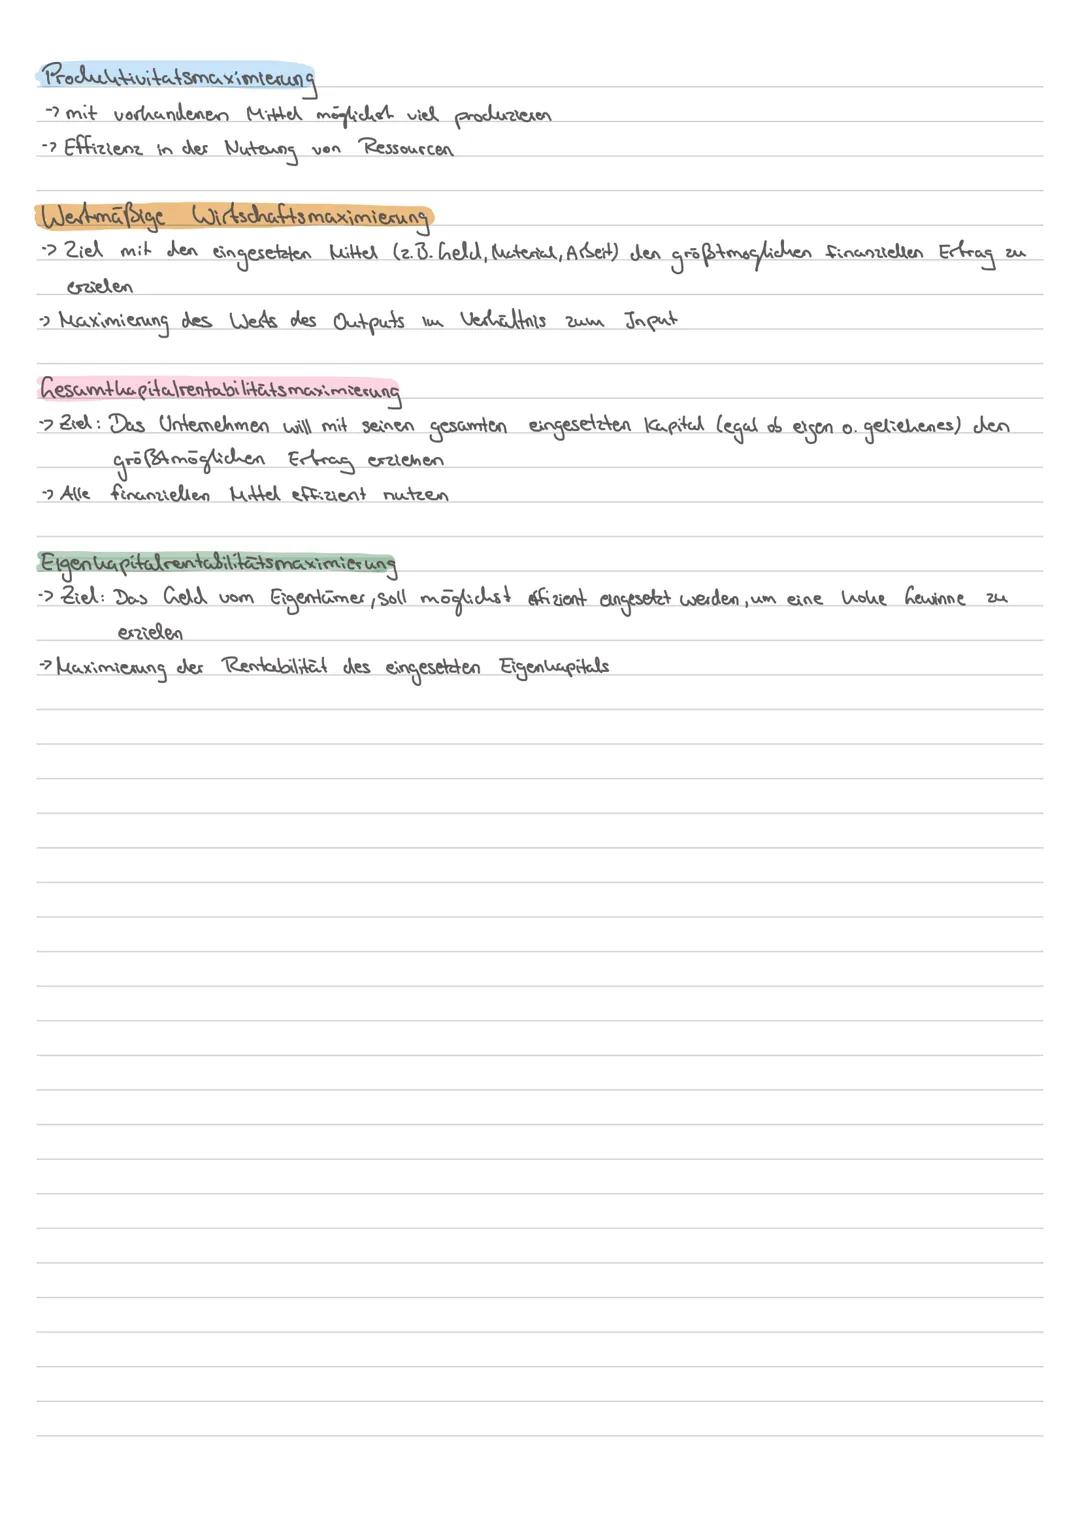 Produktivitätsmaximierung
-> mit vorhandenen Mittel möglichst viel produzieren
-> Effizienz in der Nutzung von Ressourcen
Wertmäßige Wirtschaftsmaximierung
-> Ziel mit den eingesetzten Mittel (z.B. Geld, Material, Arbeit) den größtmöglichen finanziellen Ertrag zu
erzielen
-> Maximierung des Werts des Outputs im Verhältnis zum Input
Gesamtkapitalrentabilitätsmaximierung
-> Ziel: Das Unternehmen will mit seinen gesamten eingesetzten Kapital (egal ob eigen o. geliehenes) den
größtmöglichen Ertrag erziehen
-> Alle finanziellen Mittel effizient nutzen
Eigenkapitalrentabilitätsmaximierung
-> Ziel: Das Geld vom Eigentümer, soll möglichst effizient eingesetzt werden, um eine hohe Gewinne zu
erzielen
-> Maximierung der Rentabilität des eingesetzten Eigenkapitals